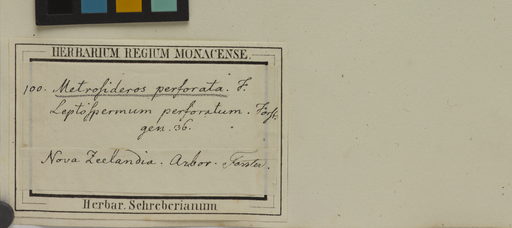 HERBARIUM REGIUM MONACENSE.
100. Metrosideros perforata. F.
Leptospermum perforatum. Forst.
gen. 36.
Nova Zeelandia. Arbor. Forster.
Herbar. Schreberianum